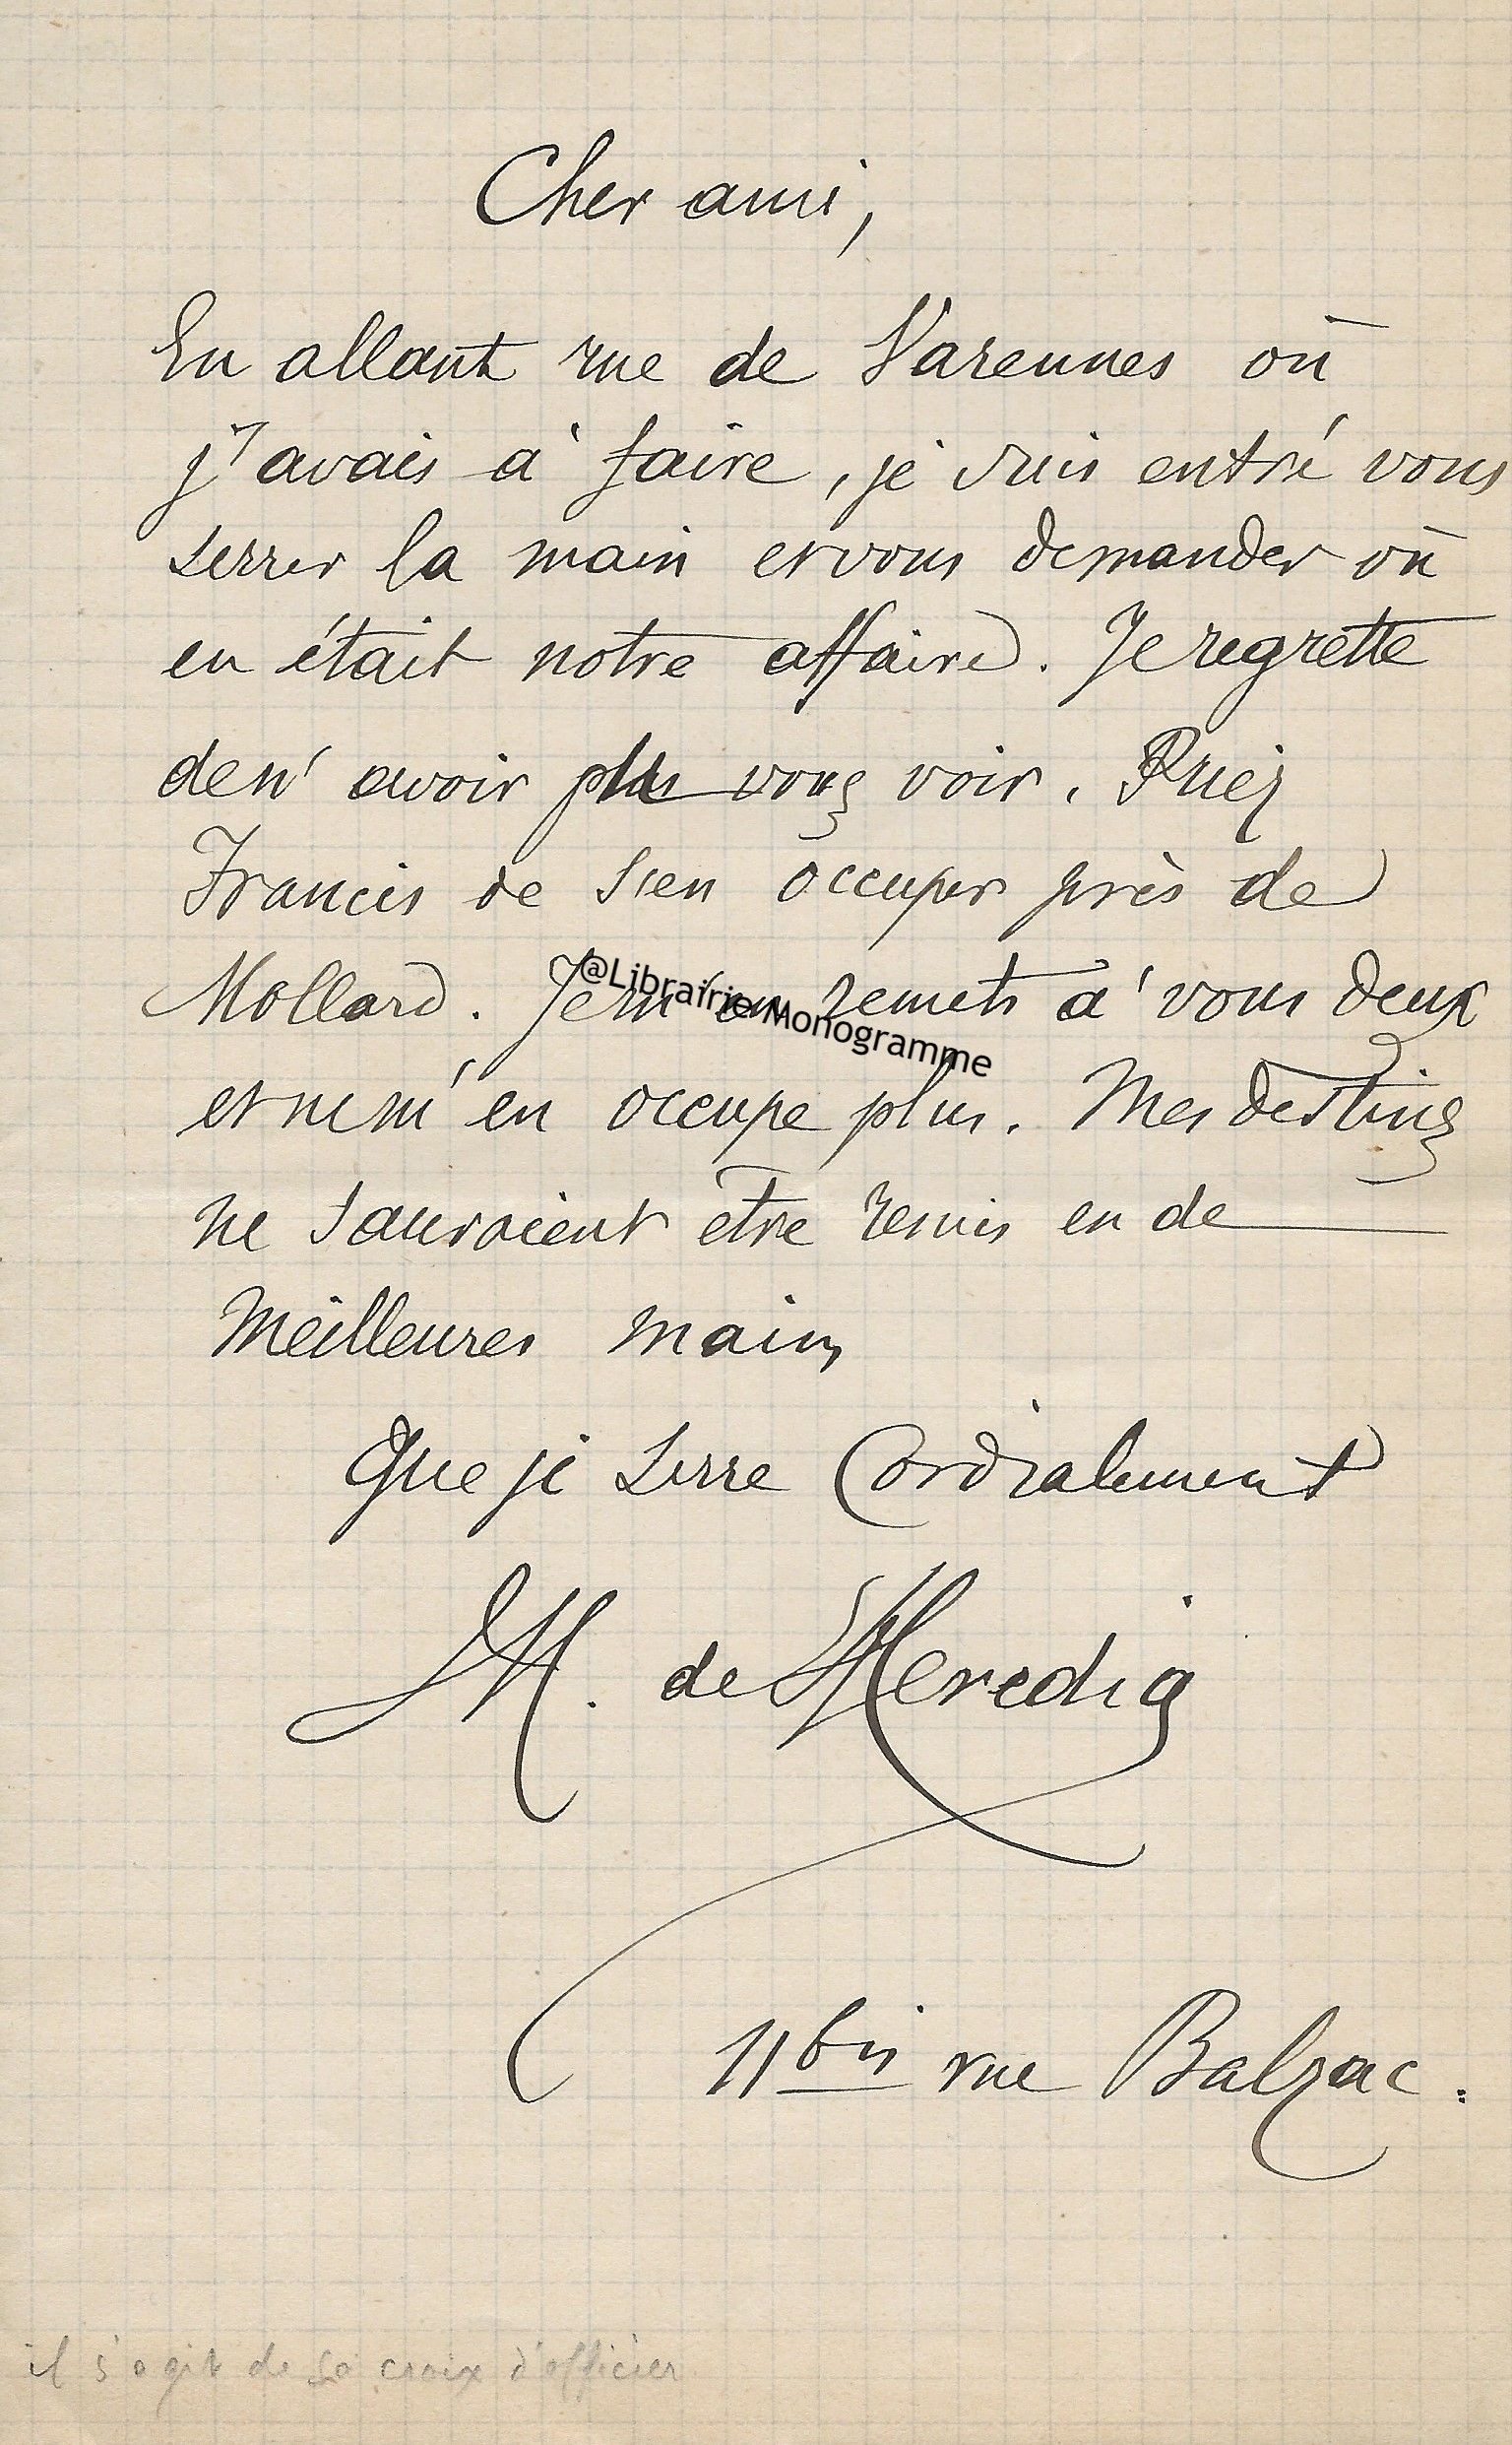 Cher ami,
En allant rue de Varennes où
j'avais à faire, je suis entré vous
serrer la main et vous demander où
en était notre affaire. Je regrette
de n'avoir pu vous voir. Priez
Francis de s'en occuper près de
Mollard. Je m'en remets à vous deux
et ne m'en occupe plus. Mes destins
ne sauroient être remis en de
meilleures mains
Que je serre cordialement
JM. de Heredia
11 bis rue Balzac.
il s'agit de sa croix d'officier
@Librairie Monogramme